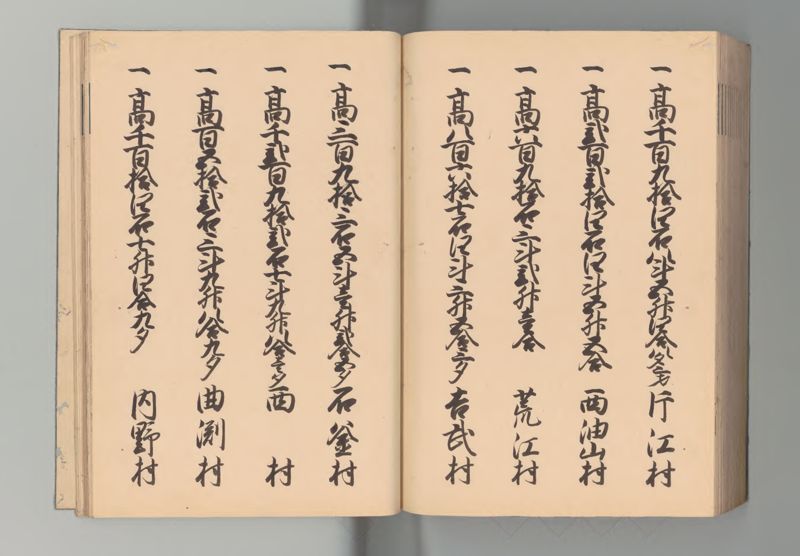 一 高千百九拾四石八斗五升四合八夕 片江村
一 高弐百弐拾四石四斗五升五合 西油山村
一 高六百九拾石三斗弐升壱合 荒江村
一 高八百六拾七石四斗三升五合三夕 吉武村
一 高三百九拾三石五斗壱升弐合五夕 石釜村
一 高千弐百九拾弐石七斗九升八合三夕 西村
一 高百五拾弐石三斗九升八合九夕 曲渕村
一 高千百拾四石七升四合九夕 内野村